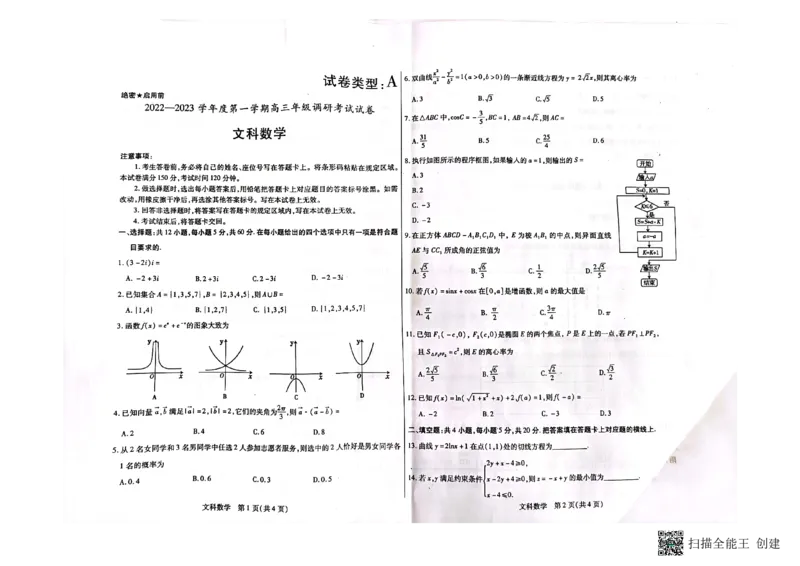 试卷类型:A
绝密★启用前
2022—2023 学年度第一学期高三年级调研考试试卷
文科数学
注意事项:
1. 考生答卷前,务必将自己的姓名、座位号写在答题卡上。将条形码粘贴在规定区域。
本试卷满分 150 分,考试时间 120 分钟。
2. 做选择题时,选出每小题答案后,用铅笔把答题卡上对应题目的答案标号涂黑。如需
改动,用橡皮擦干净后,再选涂其他答案标号。写在本试卷上无效。
3. 回答非选择题时,将答案写在答题卡的规定区域内,写在本试卷上无效。
4. 考试结束后,将答题卡交回。
一、选择题:共 12 小题,每小题 5 分,共 60 分. 在每小题给出的四个选项中只有一项是符合题
目要求的.
1. (3-2i)i=
A. -2+3i B. 2+3i C. 2-3i D. -2-3i
2. 已知集合 A={1,3,5,7},B={2,3,4,5},则 A∪B=
A. {1,4} B. {1,2,7} C. {1,3,5} D. {1,2,3,4,5,7}
3. 函数 f(x)=eˣ+e⁻ˣ的图象大致为
y y y y
O x O x O x O x
A B C D
4. 已知向量 a,b 满足|a|=2,|b|=2,它们的夹角为2π/3,则 a·(a-b)=
A. 2 B. 4 C. 6 D. 8
5. 从 2 名女同学和 3 名男同学中任选 2 人参加志愿者服务,则选中的 2 人恰好是男女同学各
1 名的概率为
A. 0.4 B. 0.6 C. 0.3 D. 0.5
文科数学 第 1 页(共 4 页)
6. 双曲线x²/a²-y²/b²=1(a>0,b>0)的一条渐近线方程为 y=2√2x,则其离心率为
A. 3 B. √3 C. √5 D. 5
7. 在△ABC 中,cosC=-3/5,BC=1, AB=4√2,则 AC=
A. 31/5 B. 5 C. 25/4 D. 6
8. 执行如图所示的程序框图,如果输入的 a=1,则输出的 S=
A. 3
B. 2
C. -3
D. -2
开始
输入a
S=0,K=1
K≤6
否
是
S=S+a·K
a=-a
K=K+1
输出S
结束
9. 在正方体 ABCD-A₁B₁C₁D₁ 中, E 为棱 A₁B₁ 的中点,则异面直线
AE 与 CC₁ 所成角的正弦值为
A. √5/5 B. √6/3 C. 1/2 D. 2√5/5
10. 若 f(x)=sinx+cosx 在[0,a]是增函数,则 a 的最大值是
A. π/4 B. π/2 C. 3π/4 D. π
11. 已知 F₁(-c,0), F₂(c,0)是椭圆 E 的两个焦点, P 是 E 上的一点,若 PF₁⊥PF₂,
且 S△F₁PF₂=c²,则 E 的离心率为
A. 2√5/5 B. √6/3 C. √2/2 D. √3/2
12. 已知 f(x)=ln(√1+x²+x)+2,f(a)=1,则 f(-a)=
A. -2 B. 2 C. -3 D. 3
二、填空题:共 4 小题,每小题 5 分,共 20 分. 把答案填在答题卡上对应题的横线上.
13. 曲线 y=2lnx+1 在点(1,1)处的切线方程为________.
14. 若 x,y 满足约束条件{2y+x-4≥0, x-2y+4≥0, x-4≤0. 则 z=-x+y 的最小值为________.
文科数学 第 2 页(共 4 页)
扫描全能王 创建